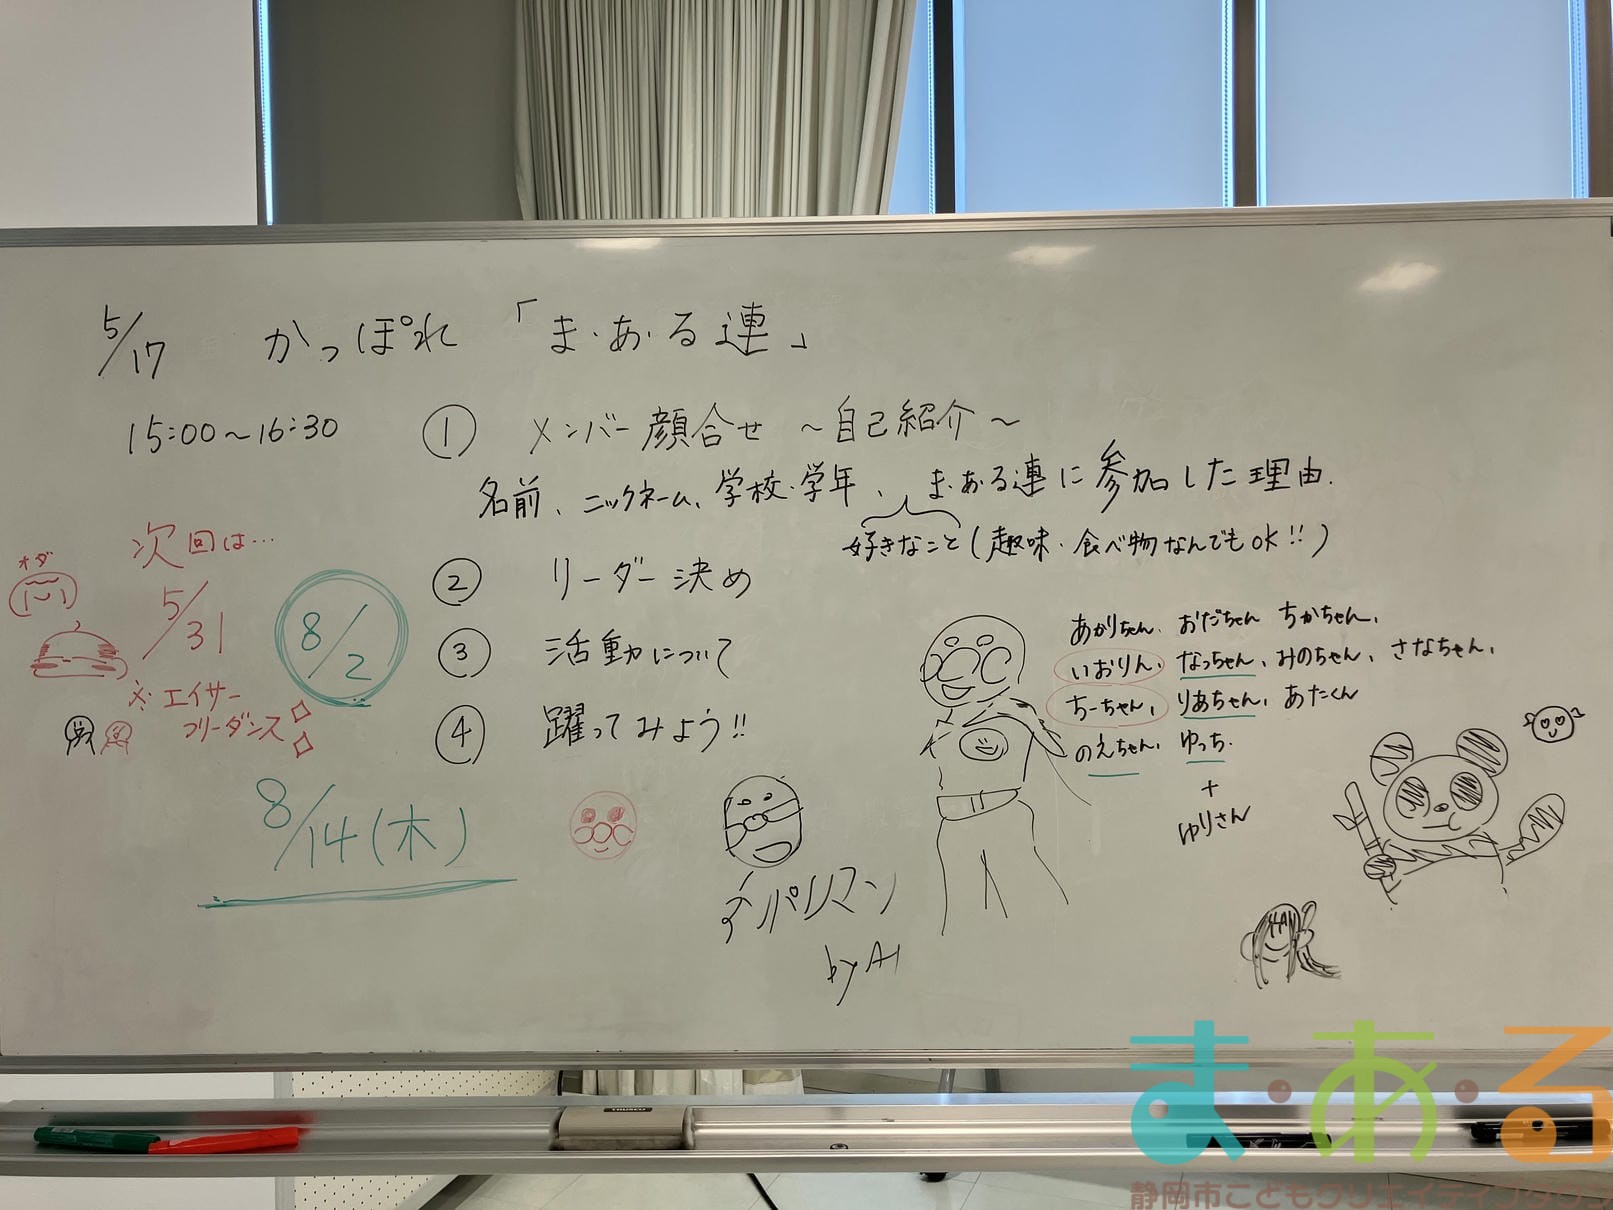 5/17 かっぽれ 「ま・あ・る連」
15:00～16:30
① メンバー顔合せ ～自己紹介～
名前、ニックネーム、学校・学年、ま・ある連に参加した理由.
好きなこと(趣味・食べ物なんでもOK!!)
② リーダー決め
③ 活動について
④ 躍ってみよう!!
次回は…
オダ
5/31
8/2
※エイサー
フリーダンス
8/14(木)
あかりちゃん、おだちゃん ちかちゃん、
いおりん、なっちゃん、みのちゃん、さなちゃん、
ちーちゃん、りあちゃん、あたくん
のえちゃん、ゆっち.
+
ゆりさん
パンマン
by AI
TRUSCO
ま・あ・る
静岡市こどもクリエイティブタウン